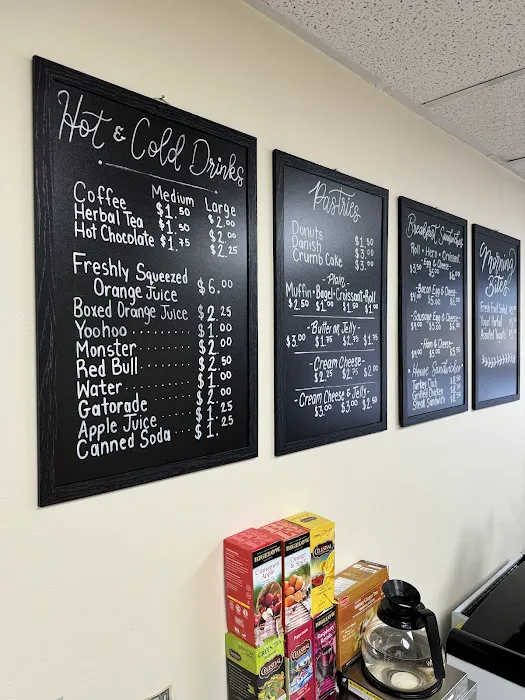 Hot & Cold Drinks
Medium Large
Coffee $1.50 $2.00
Herbal Tea $1.50 $2.00
Hot Chocolate $1.75 $2.25
Freshly Squeezed
Orange Juice $6.00
Boxed Orange Juice $2.25
Yoohoo $1.00
Monster $2.00
Red Bull $2.50
Water $1.00
Gatorade $2.00
Apple Juice $1.25
Canned Soda $1.25
Pastries
Donuts $1.50
Danish $3.00
Crumb Cake $3.00
-Plain-
Muffin·Bagel·Croissant·Roll
$2.50 $1 $1
-Butter or Jelly-
$3.00 $1.75 $2.75 $1.75
-Cream Cheese-
$2.25 $2.75 $2.00
-Cream Cheese & Jelly-
$3.00 $3.00 $2.50
Breakfast Sandwiches
Roll · Hero · Croissant
-Egg & Cheese-
-Bacon Egg & Cheese-
-Sausage Egg & Cheese-
-Ham & Cheese-
Turkey Club
Grilled Chicken
Steak Sandwich
Morning
Bites
Fresh Fruit Salad
BIGELOW
Cinnamon
Apple
BIGELOW
Orange
& Spice
CELESTIAL
GREEN TEA
CELESTIAL
CELESTIAL
Peppermint